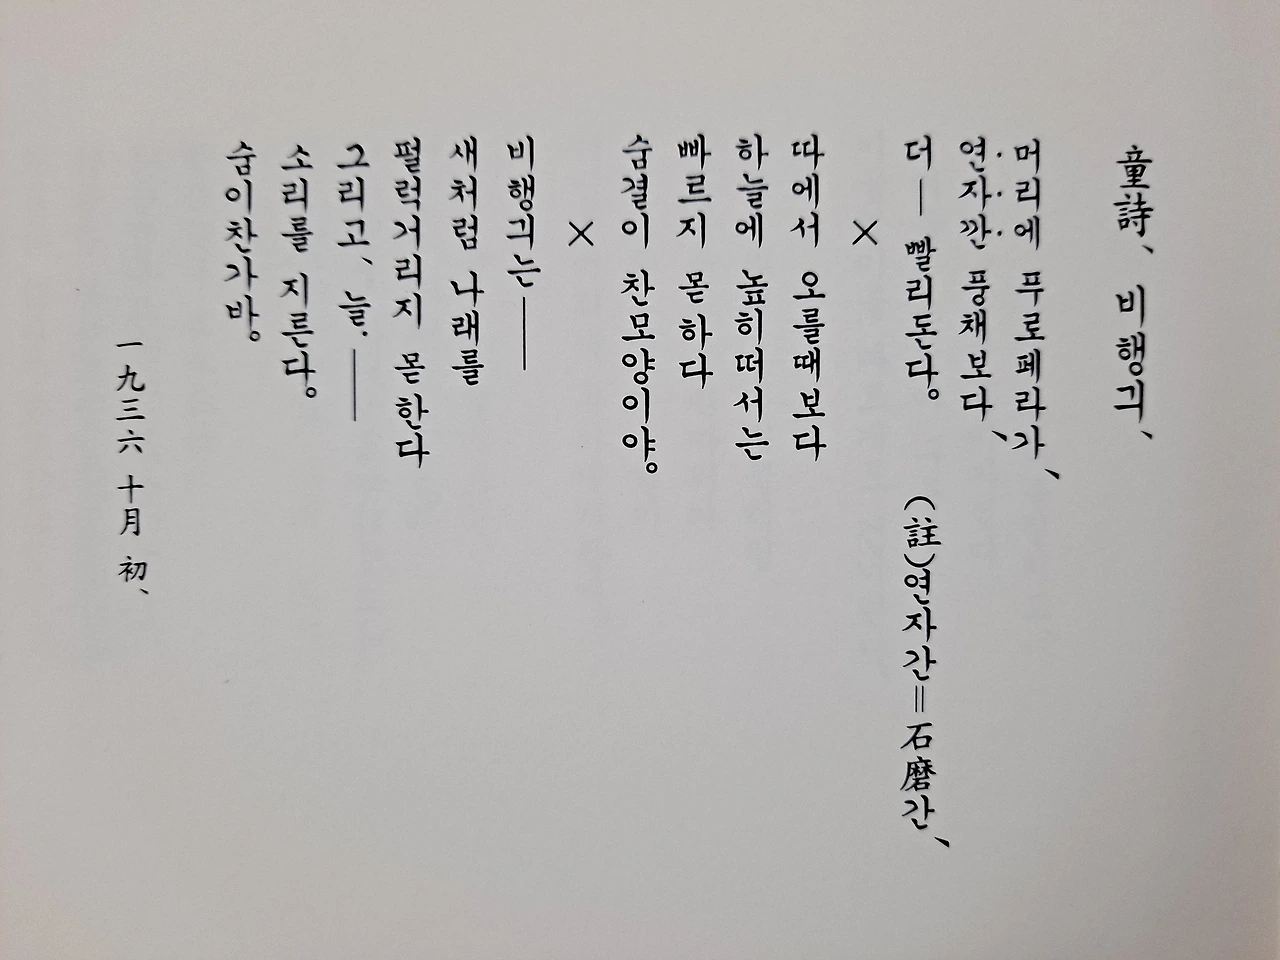 童詩、 비행긔、
머리에 푸로페라가、
연자깐 풍채보다、
더― 빨리돈다。 (註)연자간=石磨간、
×
따에서 오를때보다
하늘에 높히떠서는
빠르지 몯하다
숨결이 찬모양이야。
×
비행긔는――
새처럼 나래를
펄럭거리지 몯한다
그리고、 늘・――
소리를 지른다。
숨이찬가바。
一九三六 十月 初、